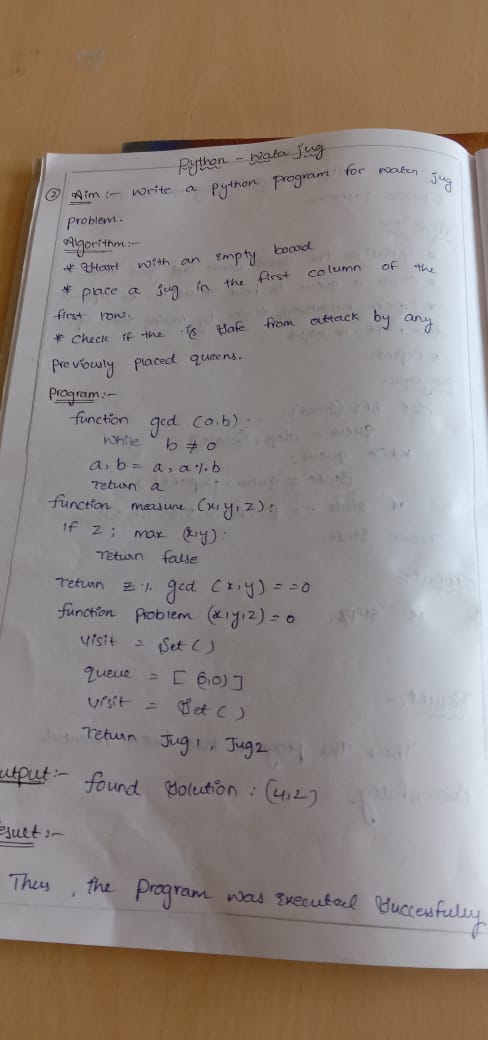 Python - Water jug
② Aim :- Write a python program for water jug
problem.
Algorithm :-
* Start with an empty board
* place a jug in the first column of the
first row.
* Check if the is safe from attack by any
previously placed queens.
Program :-
function gcd (a,b) :
while b ≠ 0
a, b = a, a % b
return a
function measure (x, y, z) :
if z ; max (x,y) :
return false
return z % gcd (x,y) = = 0
function problem (x,y,z) = 0
visit = Set ( )
queue = [ (0,0) ]
visit = Set ( )
return Jug1, Jug2
utput :- found solution : (4,2)
esult :-
Thus , the program was executed successfully